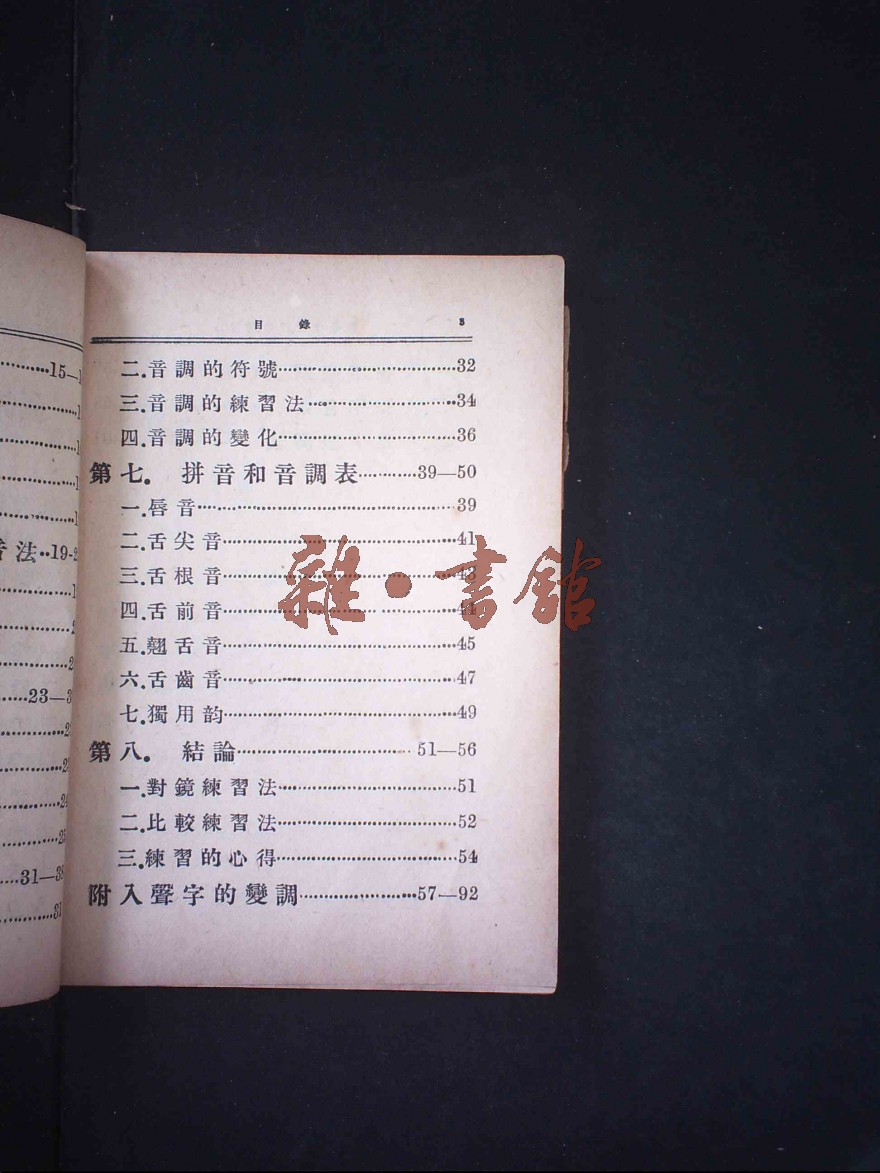 目錄 3
二.音調的符號……32
三.音調的練習法……34
四.音調的變化……36
第七. 拼音和音調表……39—50
一.唇音……39
二.舌尖音……41
三.舌根音……43
四.舌前音……44
五.翹舌音……45
六.舌齒音……47
七.獨用韵……49
第八. 結論……51—56
一.對鏡練習法……51
二.比較練習法……52
三.練習的心得……54
附入聲字的變調……57—92
雜·書館